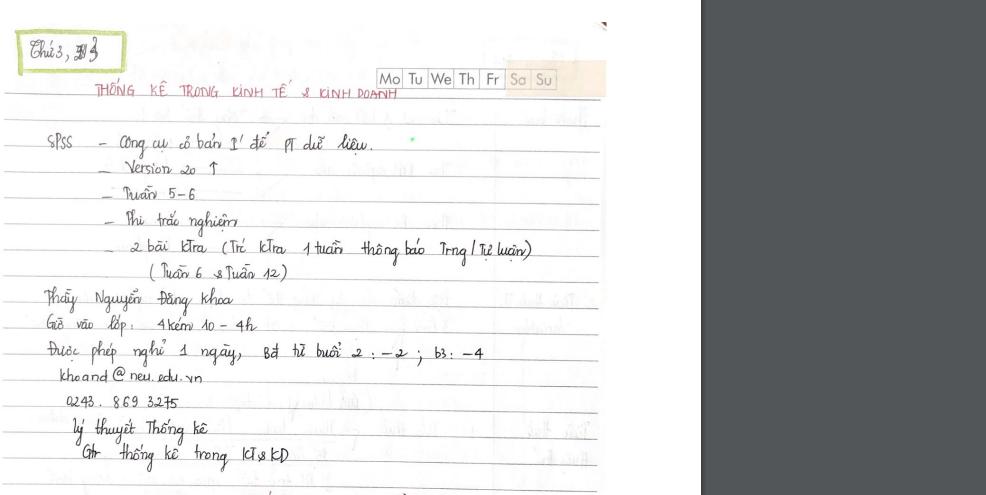 Thứ 3,
Mo Tu We Th Fr Sa Su
THỐNG KÊ TRONG KINH TẾ & KINH DOANH
SPSS - Công cụ cơ bản I' để PT dữ liệu.
- Version 20 ↑
- Tuần 5-6
- Thi trắc nghiệm
- 2 bài KTra (Trc KTra 1 tuần thông báo Trng/Tự luận)
(Tuần 6 & Tuần 12)
Thầy Nguyễn Đăng Khoa
Giờ vào lớp: 4 kém 10 - 4h
Được phép nghỉ 1 ngày, Bđ từ buổi 2 : -2 ; b3: -4
khoand@neu.edu.vn
0243. 869 3275
Lý thuyết Thống kê
Gtr thống kê trong KT & KD